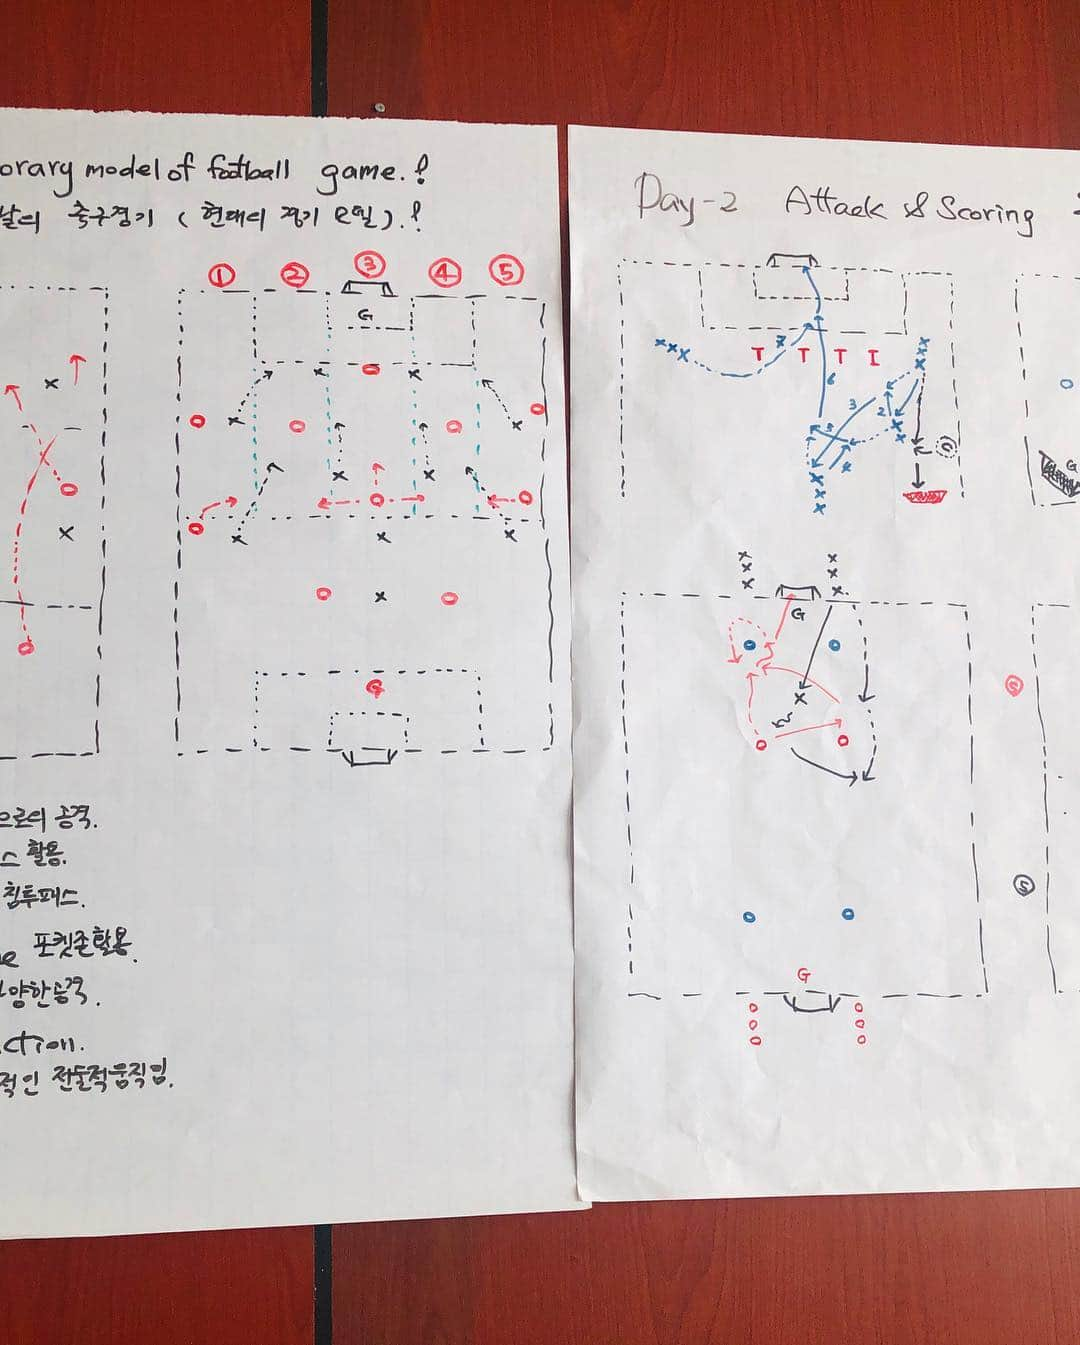 orary model of football game.!
날의 축구경기 (현대의 경기 모델).!
① ② ③ ④ ⑤
G
G
으로의 공격.
스 활용.
침투패스.
e 포켓존활용.
양한공격.
ction.
적인 전술적움직임.
Day-2 Attack & Scoring
7
T T T I
6
3
2
5
4
G
G
G
S
S